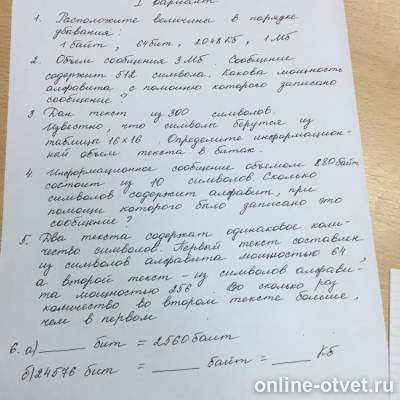 I вариант
1. Расположите величины в порядке
убывания:
1 байт, 64 бит, 2048 КБ, 1 МБ
2. Объем сообщения 3 МБ. Сообщение
содержит 512 символа. Какова мощность
алфавита с помощью которого записано
сообщение?
3. Дан текст из 300 символов.
Известно, что символы берутся из
таблицы 16×16. Определите информацион-
ный объем текста в битах.
4. Информационное сообщение объемом 880 байт
состоит из 10 символов. Сколько
символов содержит алфавит, при
помощи которого было записано это
сообщение?
5. Два текста содержат одинаковое коли-
чество символов. Первый текст составлен
из символов алфавита мощностью 64,
а второй текст – из символов алфави-
та мощностью 256. Во сколько раз
количество во втором тексте больше,
чем в первом
6. а) ____ бит = 2560 байт
б) 24576 бит = ____ байт = ____ КБ
online-otvet.ru